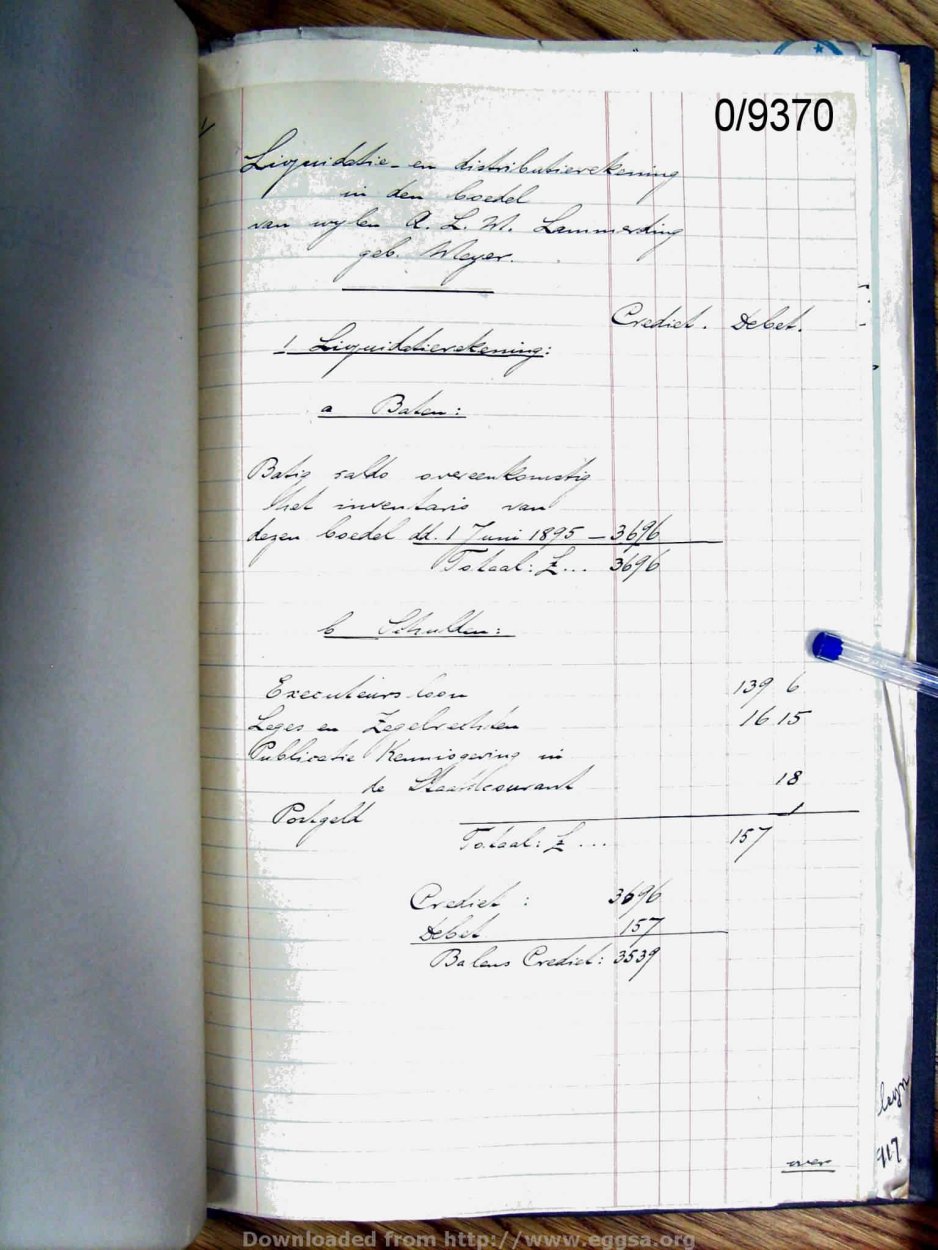 0/9370
Liquidatie- en distributierekening
in den boedel
van wylen A. L. W. Lammerding
geb. Meyer.
Crediet. Debet.
1 Liquidatierekening:
a Baten:
Batig saldo overeenkomstig
het inventaris van
dezen boedel dd. 1 Juni 1895 – 3696
Totaal: £... 3696
b Schulden:
Executeurs loon 139 6
Leges en Zegelrechten 16 15
Publicatie Kennisgeving in
de Staatscourant 18
Portgeld 1
Totaal: £ ... 157
Crediet : 3696
Debet 157
Balans Crediet: 3539
over
117
Downloaded from http://www.eggsa.org